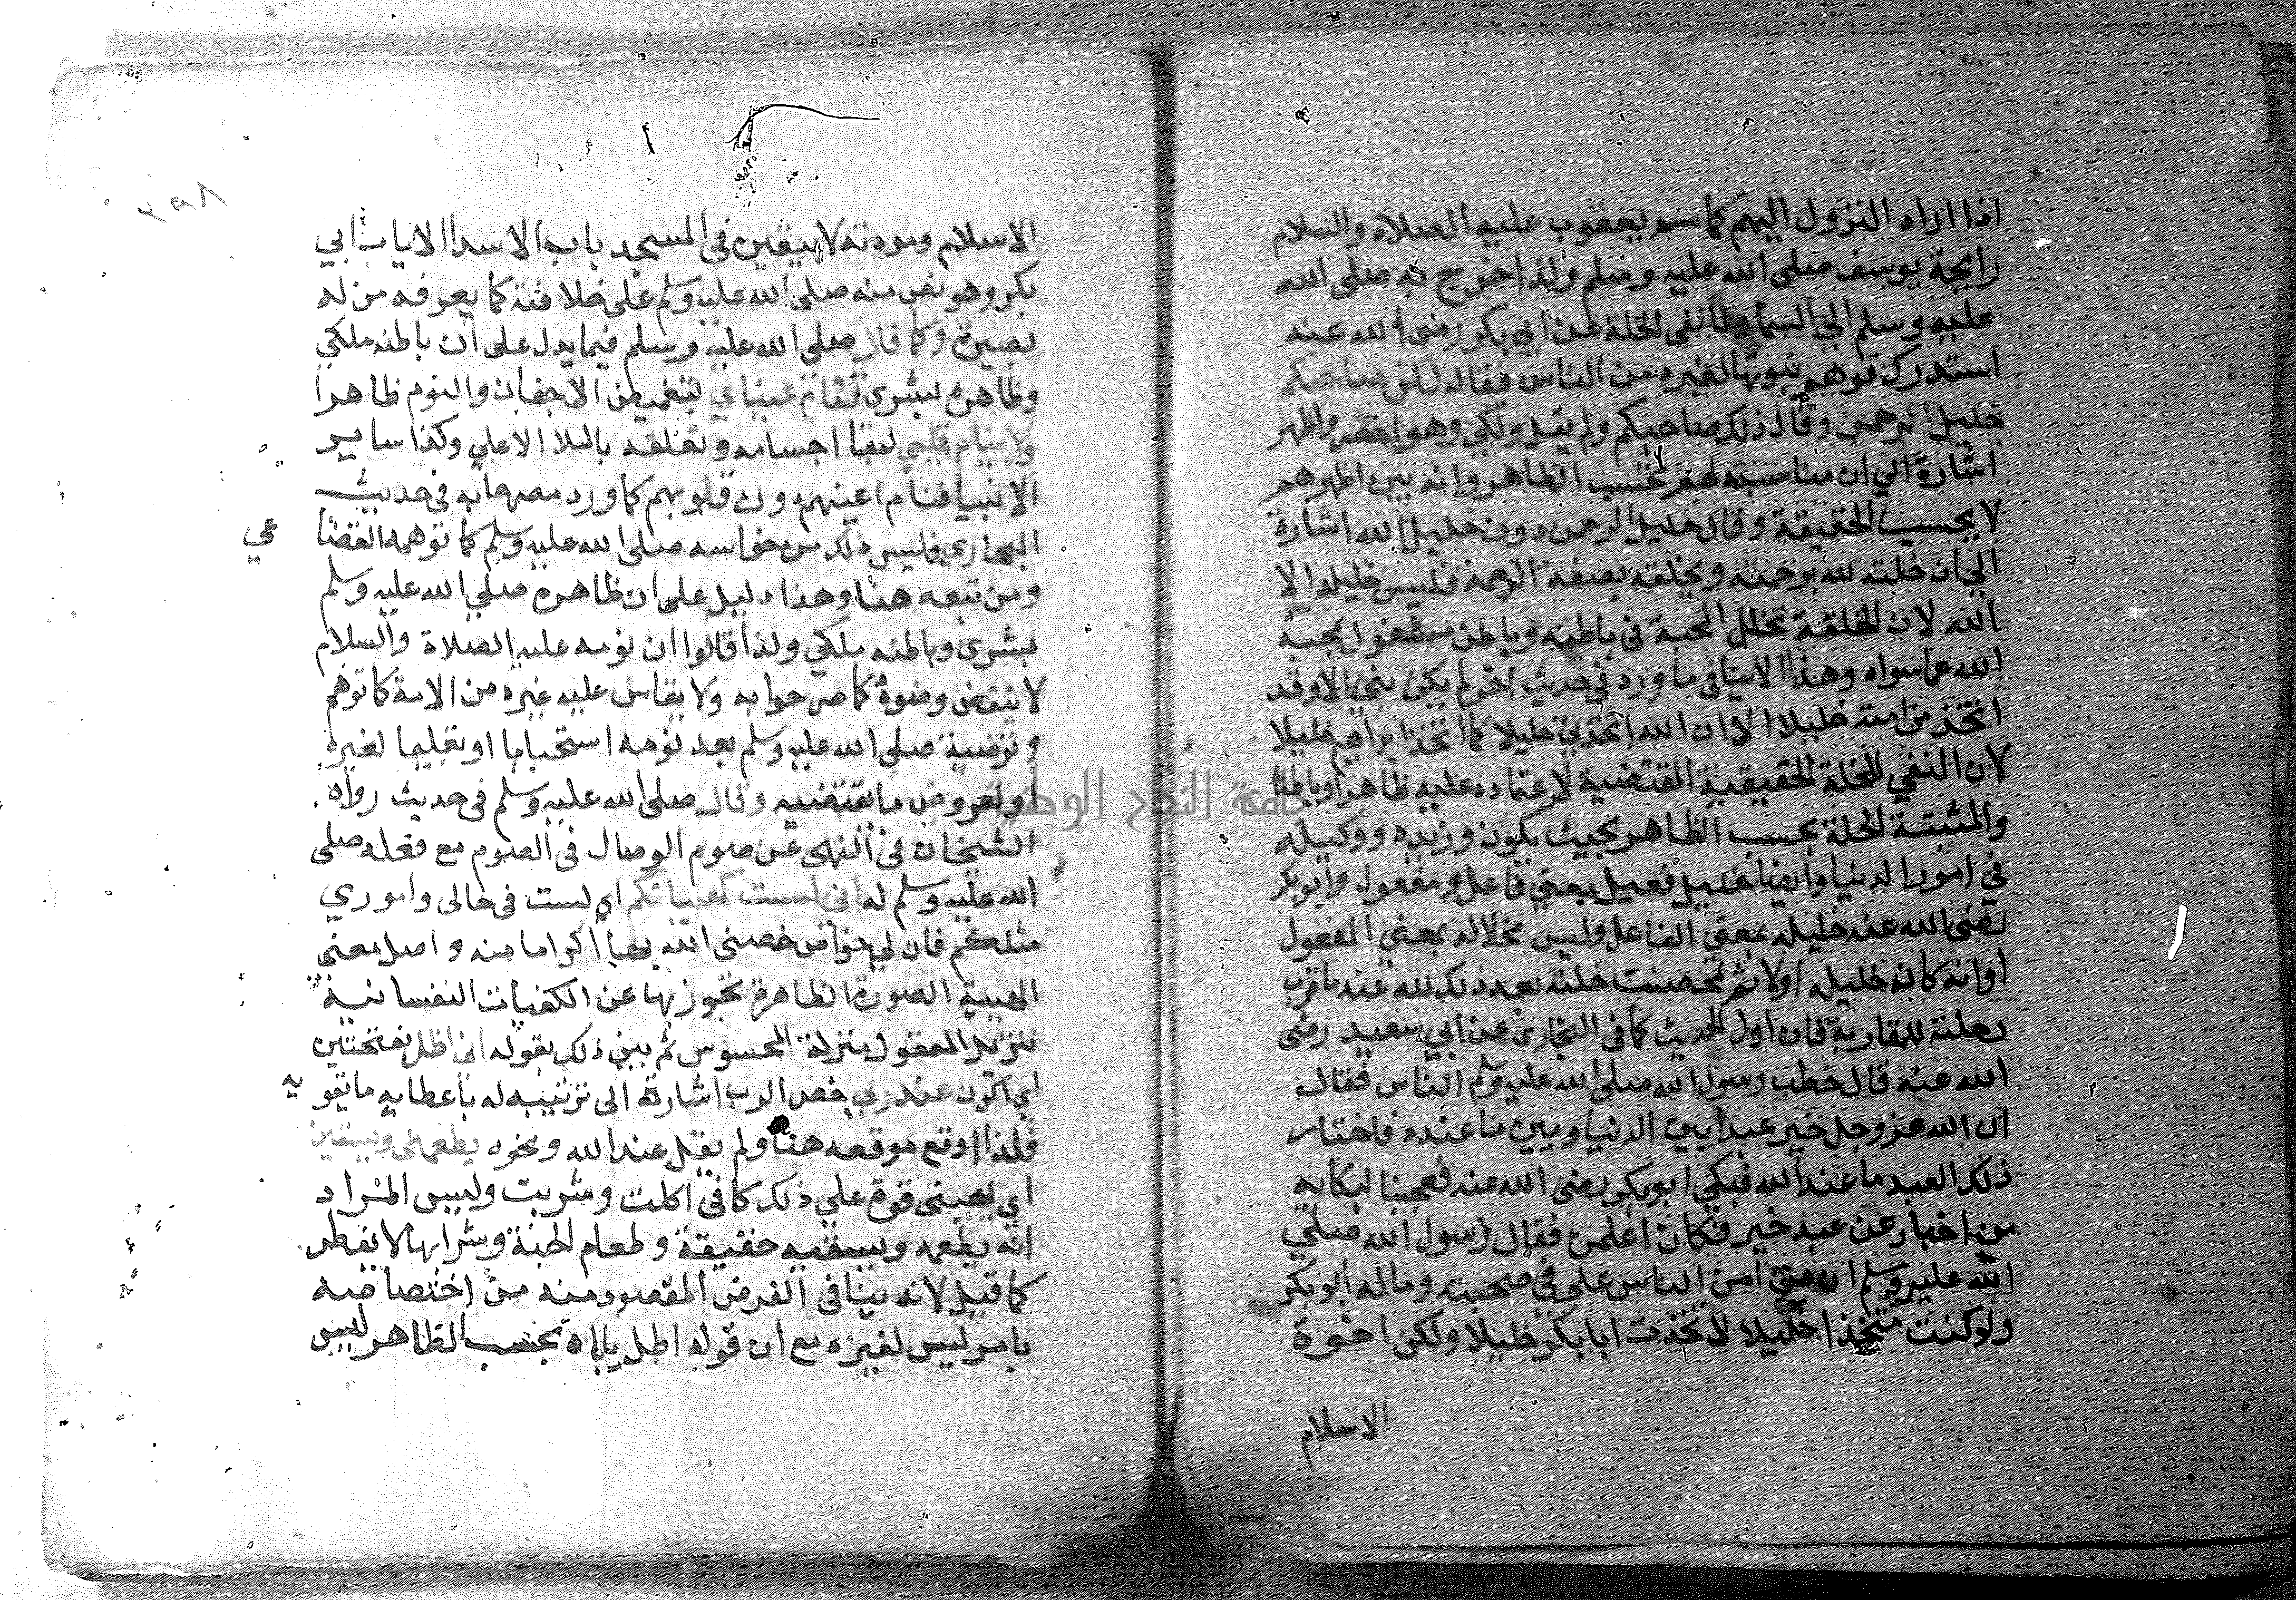 اذا اراد النزول اليهم كما سر يعقوب عليه الصلاه والسلام
رايحة يوسف صلى الله عليه وسلم ولذا اخرج به صلى الله
عليه وسلم الي السما ولما نفى الخلة عن ابي بكر رضى الله عنه
استدرك توهم ثبوتها لغيره من الناس فقال لكن صاحبكم
خليل الرحمن وقال ذلك صاحبكم ولم يقل ولكي وهو اخصر واظهر
اشارة الي ان مناسبته لهم بحسب الظاهر وانه بين اظهرهم
لا بحسب الحقيقة وقال خليل الرحمن دون خليل الله اشارة
الي ان خلته لله برحمته وبخلقه بصفة الرحمة فليس خليله الا
الله لان الخلقة تخلل المحبة فى باطنه وباطن مشغول بمحبة
الله عما سواه وهذا لاينافى ما ورد في حديث اخر لم يكن نبي الا وقد
اتخذ من امته خليلا الا ان الله اتخذني خليلا كما اتخذ ابراهيم خليلا
لان النفي للخلة الحقيقية المقتضية لاعتماده عليه ظاهرا وباطنا
والمثبتة الخلة بحسب الظاهر بحيث يكون وزيره ووكيله
في امور الدنيا وايضا خليل فعيل بمعني فاعل ومفعول وابوبكر
رضى الله عنه خليله بمعني الفاعل وليس مخلاله بمعني المفعول
اوانه كان خليله اولا ثم تمحضت خلته بعد ذلك لله عند ما قرب
رحلته للمقاربة فان اول الحديث كما فى البخارى عن ابي سعيد رضى
الله عنه قال خطب رسول الله صلى الله عليه وسلم الناس فقال
ان الله عز وجل خير عبدا بين الدنيا وبين ما عنده فاختار
ذلك العبد ما عند الله فبكي ابوبكر رضى الله عنه فعجبنا لبكايه
من اخبار عن عبد خير فكان اعلمنا فقال رسول الله صلي
الله عليه وسلم ان من امن الناس على في صحبته وماله ابوبكر
ولو كنت متخذا خليلا لاتخذت ابا بكر خليلا ولكن اخوة
الاسلام
٣٩٨
الاسلام ومودته لا يبقين فى المسجد باب الا سد الا باب ابي
بكر وهو نص منه صلى الله عليه وسلم على خلافته كما يعرفه من له
بصيرة وكما قال صلى الله عليه وسلم فيما يدل على ان باطنه ملكي
وظاهره بشرى تنام عيناي بتغميض الاجفان والنوم ظاهرا
ولا ينام قلبي لبقا احساسه وتعلقه بالملا الاعلي وكذا ساير
الانبيا فتنام اعينهم دون قلوبهم كما ورد مصرحا به فى حديث
البخاري فليس ذلك من خواصه صلى الله عليه وسلم كما توهمه القضا
عي
ومن تبعه هنا وهذا دليل على ان ظاهره صلي الله عليه وسلم
بشرى وباطنه ملكي ولذا قالوا ان نومه عليه الصلاة والسلام
لا ينقض وضوءه كما صرحوا به ولا يقاس عليه غيره من الامة كما توهم
وتوضيه صلى الله عليه وسلم بعد نومه استحبابا او تعليما لغيره
او لعروض ما يقتضيه وقال صلى الله عليه وسلم فى حديث رواه
الشيخان فى النهى عن صوم الوصال فى الصوم مع فعله صلى
الله عليه وسلم له اني لست كهياتكم اي لست فى حالى واموري
مثلكم فان لي خواص خصنى الله بها اكراما منه واصل معنى
الهيية الصورة الظاهرة تجوز بها عن الكيفيات النفسانية
تنزيل المعقول منزلة المحسوس ثم بين ذلك بقوله اني اظل بفتحتين
اي اكون عند ربي خص الرب اشارة الى تربيته له باعطايه ما يقو
يه
فلذا اوقع موقعه هنا ولم يقل عند الله ونحوه يطعمني ويسقين
اي يعطينى قوة على ذلك كما فى اكلت وشربت وليس المراد
انه يطعمه ويسقيه حقيقة وطعام الجنة وشرابها لا يفطر
كما قيل لانه ينافى الغرض المقصود منه من اختصاصه
بامر ليس لغيره مع ان قوله اظل ياباه بحسب الظاهر ليس
جامعة النجاح الوطنية